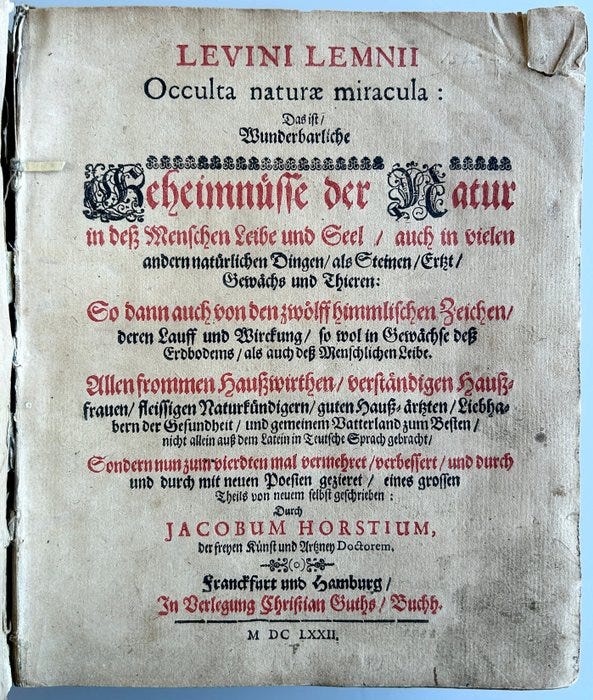 LEVINI LEMNII
Occulta naturæ miracula:
Das ist/
Wunderbarliche
Geheimnüsse der Natur
in deß Menschen Leibe und Seel / auch in vielen
andern natürlichen Dingen/ als Steinen/ Ertzt/
Gewächs und Thieren:
So dann auch von den zwölff himmlischen Zeichen/
deren Lauff und Wirckung/ so wol in Gewächse deß
Erdbodems/ als auch deß Menschlichen Leibe.
Allen frommen Haußwirthen/ verständigen Hauß-
frauen/ fleissigen Naturkündigern/ guten Hauß-ärtzten/ Liebha-
bern der Gesundheit/ und gemeinem Vatterland zum Besten/
nicht allein auß dem Latein in Teutsche Sprach gebracht/
Sondern nun zum vierdten mal vermehret/ verbessert/ und durch
und durch mit neuen Poesien gezieret/ eines grossen
Theils von neuem selbst geschrieben:
Durch
JACOBUM HORSTIUM,
der freyen Künst und Artzney Doctorem.
Franckfurt und Hamburg/
In Verlegung Christian Guths/ Buchh.
M DC LXXII.